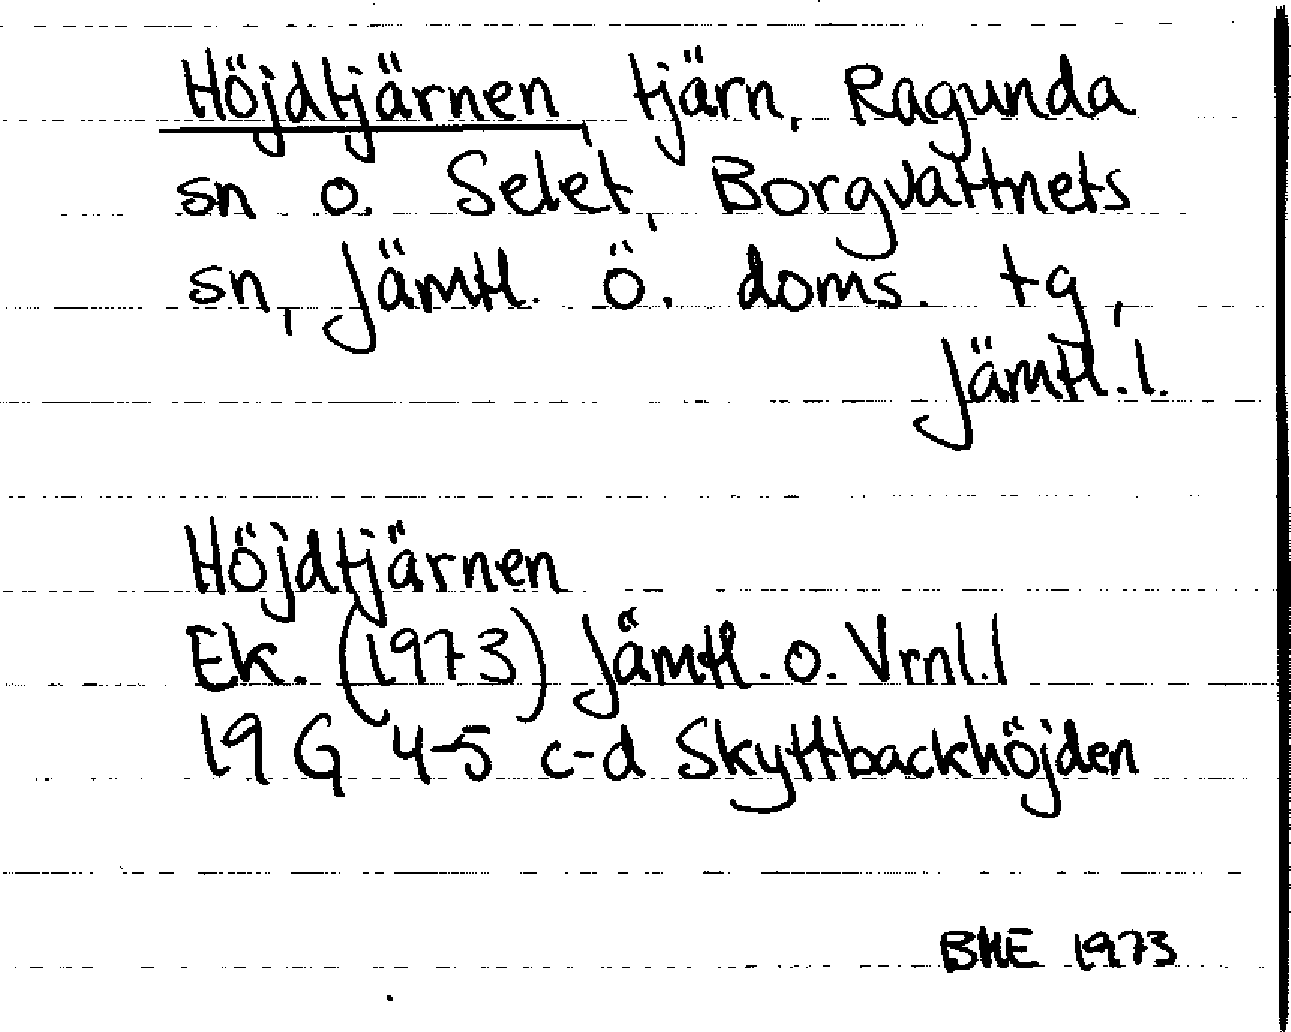 Höjdtjärnen, tjärn, Ragunda
sn o. Selet, Borgvattnets
sn, Jämtl. ö. doms. tg,
Jämtl. l.
Höjdtjärnen
Ek. (1973) Jämtl. o. Vrnl. l
19 G 4-5 c-d Skyttbackhöjden
BHE 1973